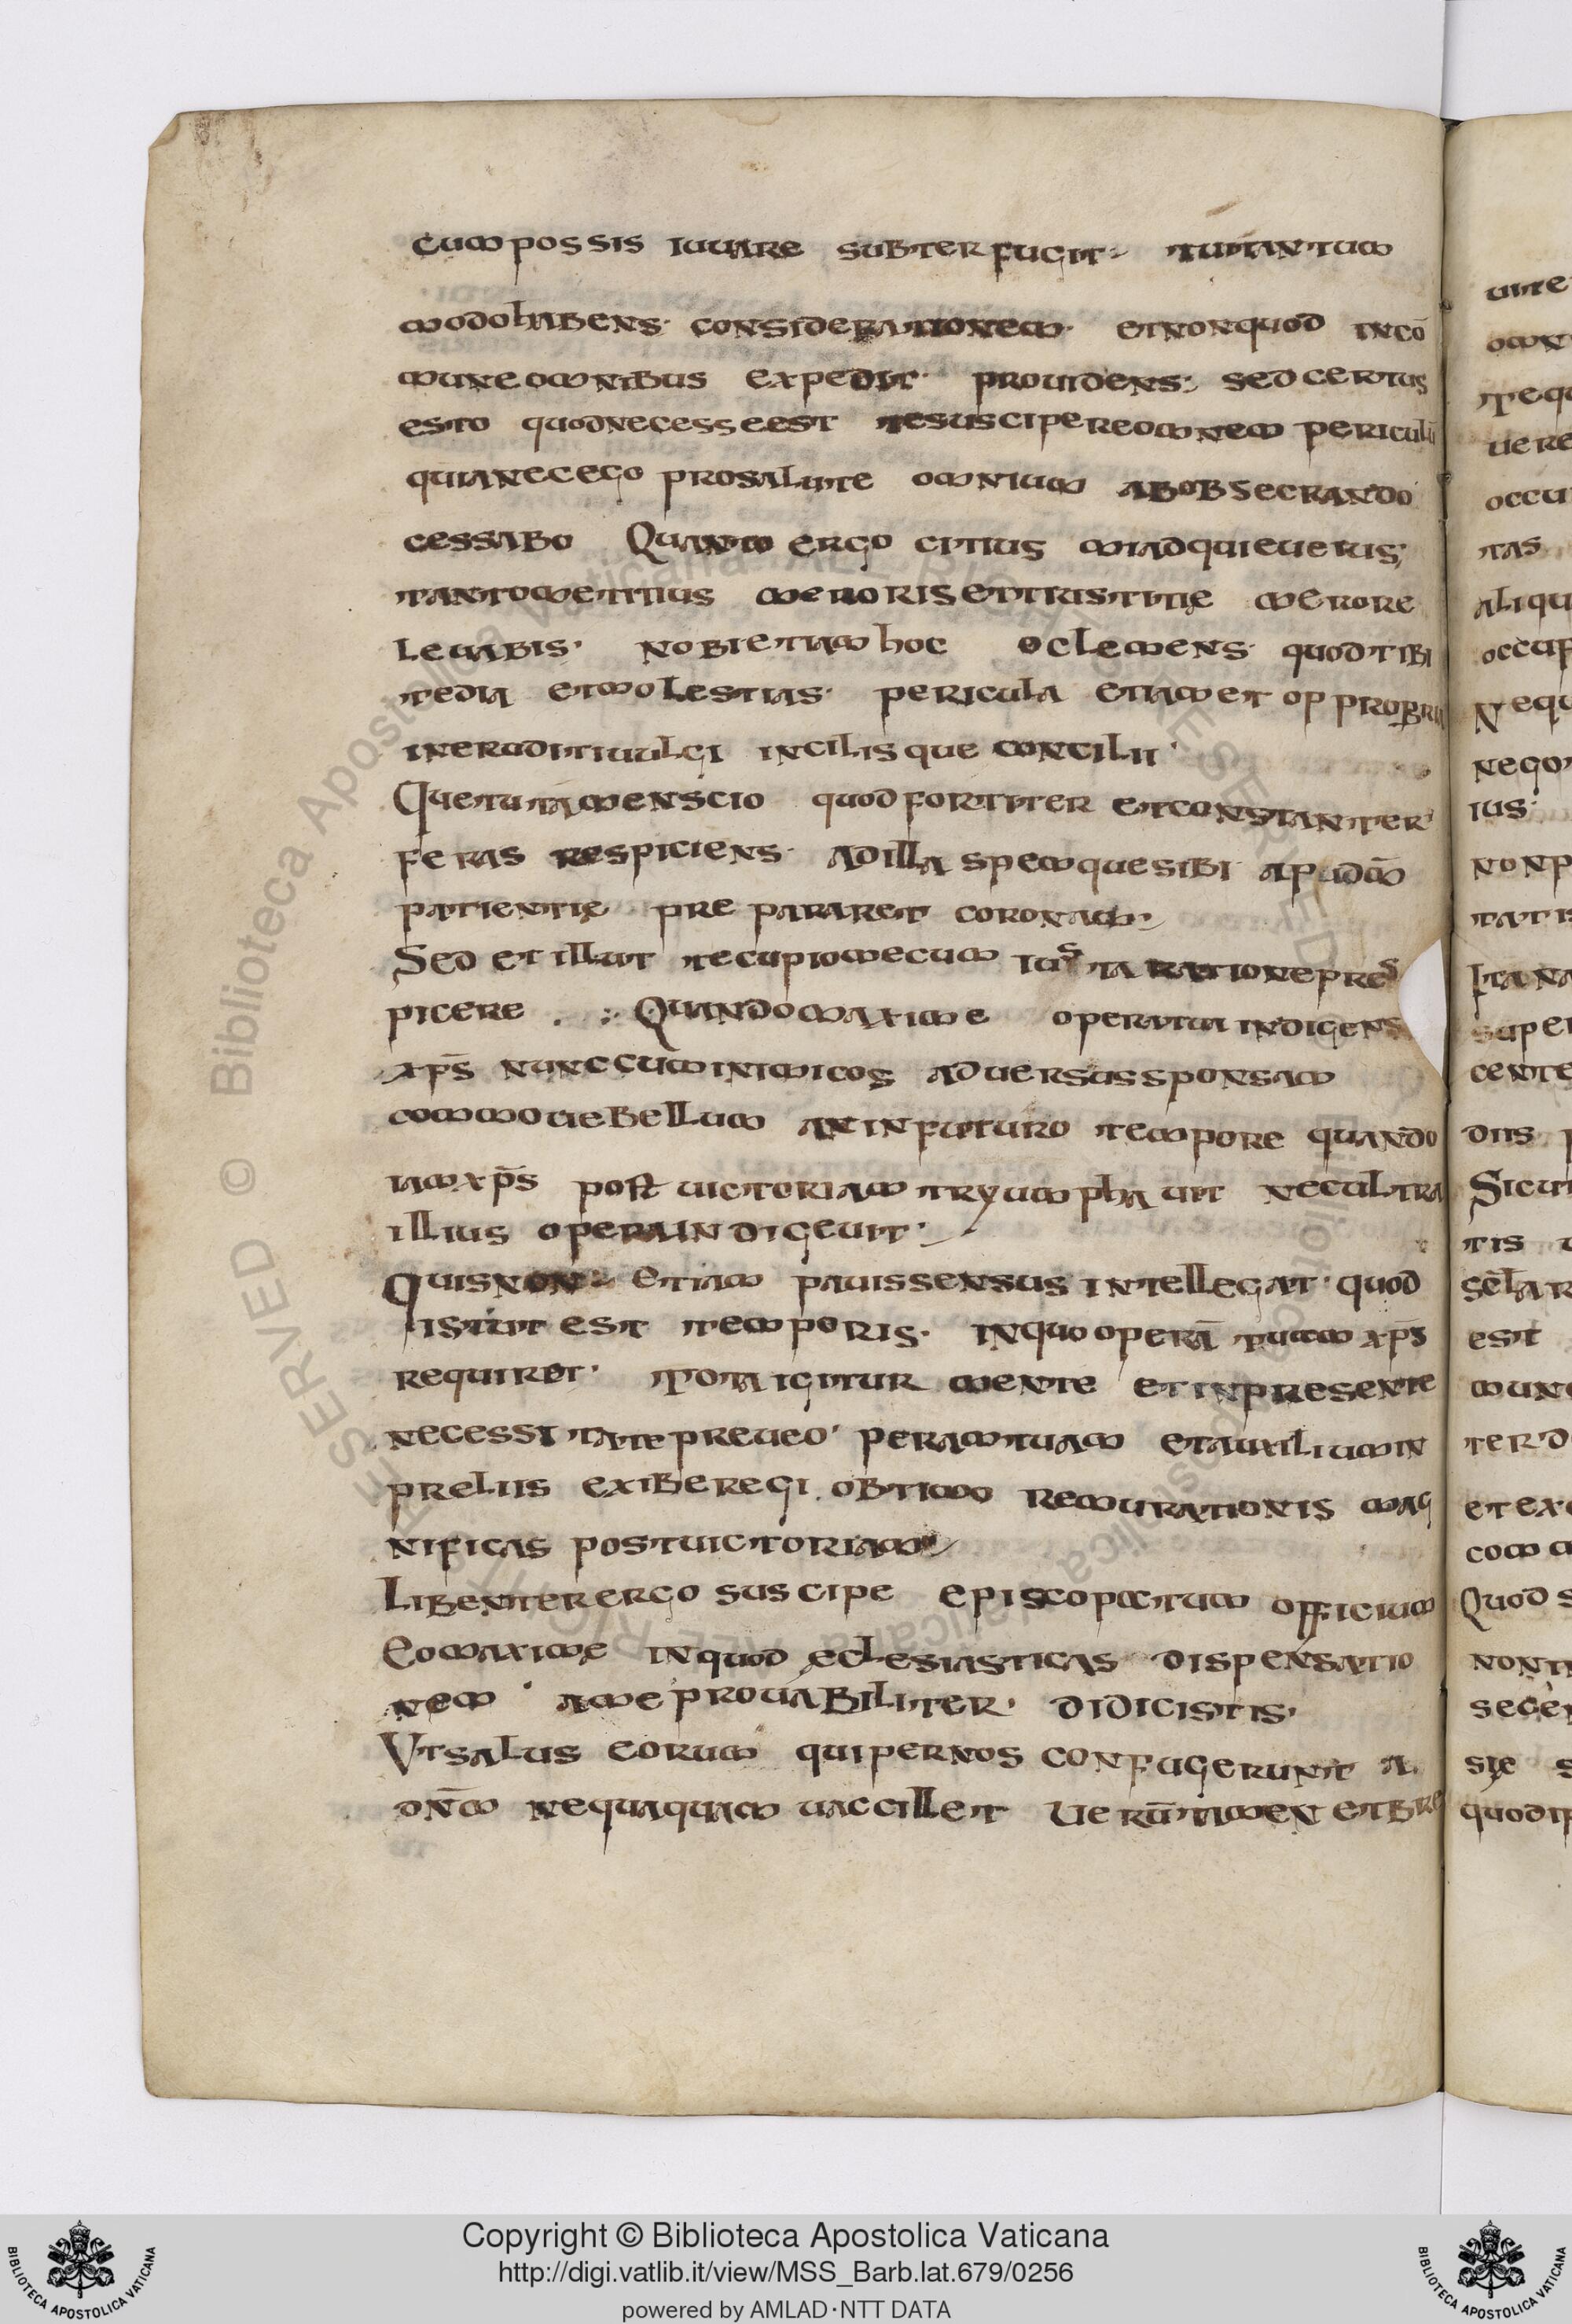 cum possis iuuare subterfugit tui tantum
modo habens · considerationem · et non quod in cō
mune omnibus expedit · prouidens; sed certus
esto quod necesse est te suscipere omnem periculū
quia nec ego pro salute omnium ab obsecrando
cessabo Quanto ergo citius mi adquieueris;
tanto me titius meroris et tristitię merore
leuabis · nobi etiam hoc o clemens · quod tibi
tedia et molestias · pericula etiam et opprobria
ineruditi uulgi incilisque concilii ·
Que tu tām en scio quod fortiter et constanter
feras respiciens · ad illa spemque sibi apud dm̄
patientię prepararet coronam
Sed et illut te cupio mecum iusta ratione pres
picere . ; Quando maxime opera tua indigens
xp̄s nunc cum inimicos aduersus sponsam
commouebellum an in futuro tempore quando
iam xp̄s post uictoriam tryumphauit nec ultra
illius opera indigeuit ·
Quis non etiam pauissensus intellegat · quod
istut est temporis · in quo operā tuam xp̄s
requiret · Tota igitur mente et in presente
necessitate preueo · peram tuam et auxilium in
preliis exibe regi obtimo remurationis mag
nificas post uictoriam
Libenter ergo suscipe episcopatum officium
Eo maxime in quod ęclesiasticas dispensatio
nem · a me prouabiliter · didicistis ·
Ut salus eorum qui per nos confugerunt a
dn̄m nequaquam uaccillet Uerūtamen et bre
uite
omn
tequ
uere
occu
tas
aliqu
occup
Nequ
nego
ius ·
non p
tatis
Ita na
super
cente
diis
Sicut
tis
sēlar
est
mun
ter d
et ex
com
Quod s
non
secē
się
quod
Copyright © Biblioteca Apostolica Vaticana
http://digi.vatlib.it/view/MSS_Barb.lat.679/0256
powered by AMLAD·NTT DATA
BIBLIOTECA APOSTOLICA VATICANA
BIBLIOTECA APOSTOLICA VATICANA